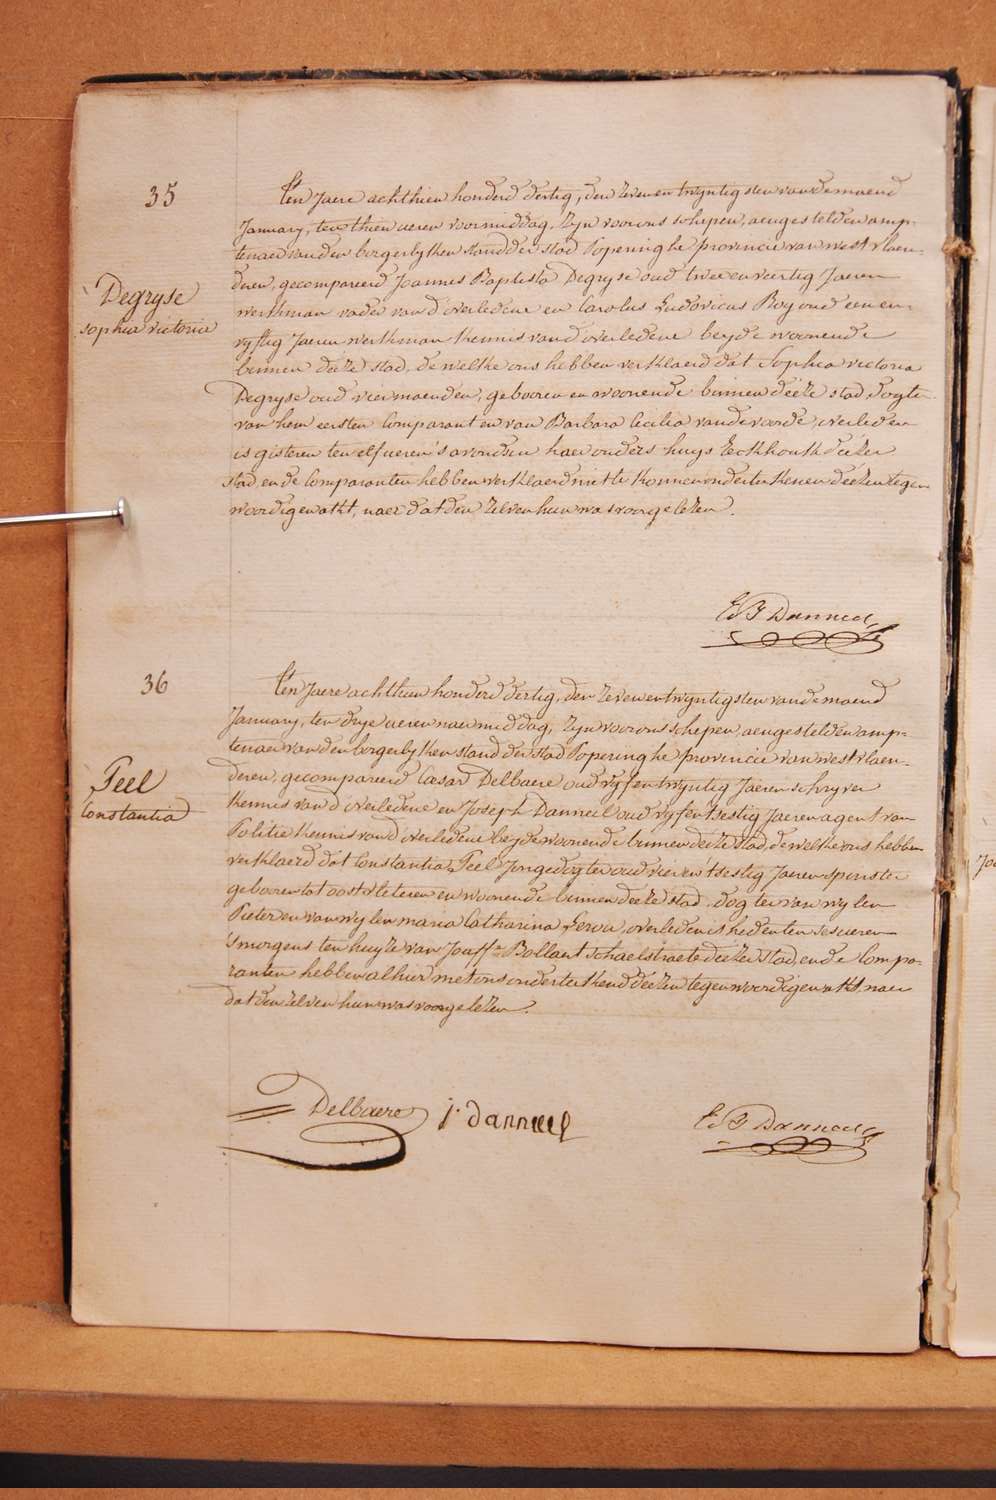 35
Degryse
sophia victoria
Ten Jaere achthien honderd dertig, den zeven en twyntigsten van de maend
January, ten thien ueren voormiddag, zyn voor ons schepen, aengestelden amp-
tenaer van den borgerlyken stand der stad Poperinghe provincie van westvlaen-
deren, gecompareerd Joannes Baptista Degryse oud twee en veertig Jaeren
werkman vader van d'overledene en Carolus Ludovicus Roy oud een en
vyftig Jaeren werkman kennis van d'overledene beyde woonende
binnen deeze stad, de welke ons hebben verklaerd dat Sophia victoria
Degryse oud vier maenden, gebooren en woonende binnen deeze stad, dogter
van hem eersten Comparant en van Barbara Cecilia vandevoorde, overleden
is gisteren ten elf ueren s'avonds in haer ouders huys Eekhoutk deezer
stad, en de Comparanten hebben verklaerd niet te konnen onderteekenen deezen tegen-
woordigen akt, naer dat den zelven hun was voorgelezen.
E B Danneel
36
Peel
Constantia
Ten Jaere achthien honderd dertig, den zeven en twyntigsten van de maend
January, ten drye ueren naermiddag, zyn voor ons schepen, aengestelden amp-
tenaer van den borgerlyken stand der stad Poperinghe provincie van westvlaen-
deren, gecompareerd Cæsar Delbaere oud vyf en twyntig Jaeren schryver
kennis van d'overledene en Joseph Danneel oud vyf en tsestig Jaeren agent van
Politie kennis van d'overledene beyde woonende binnen deeze stad, de welke ons hebben
verklaerd dat Constantia Peel Jongedogter oud vier en 'tsestig Jaeren spinster
gebooren tot oostvleteren en woonende binnen deeze stad, dogter van wylen
Pieter en van wylen maria Catharina overleden is heden ten ses ueren
's morgens ten huyze van Jouffe Bollaert schaelstraete deezer stad, en de Compa-
ranten hebben alhier met ons onderteekend deezen tegenwoordigen akt, naer
dat den zelven hun was voorgelezen.
Delbaere j. danneel E B Danneel